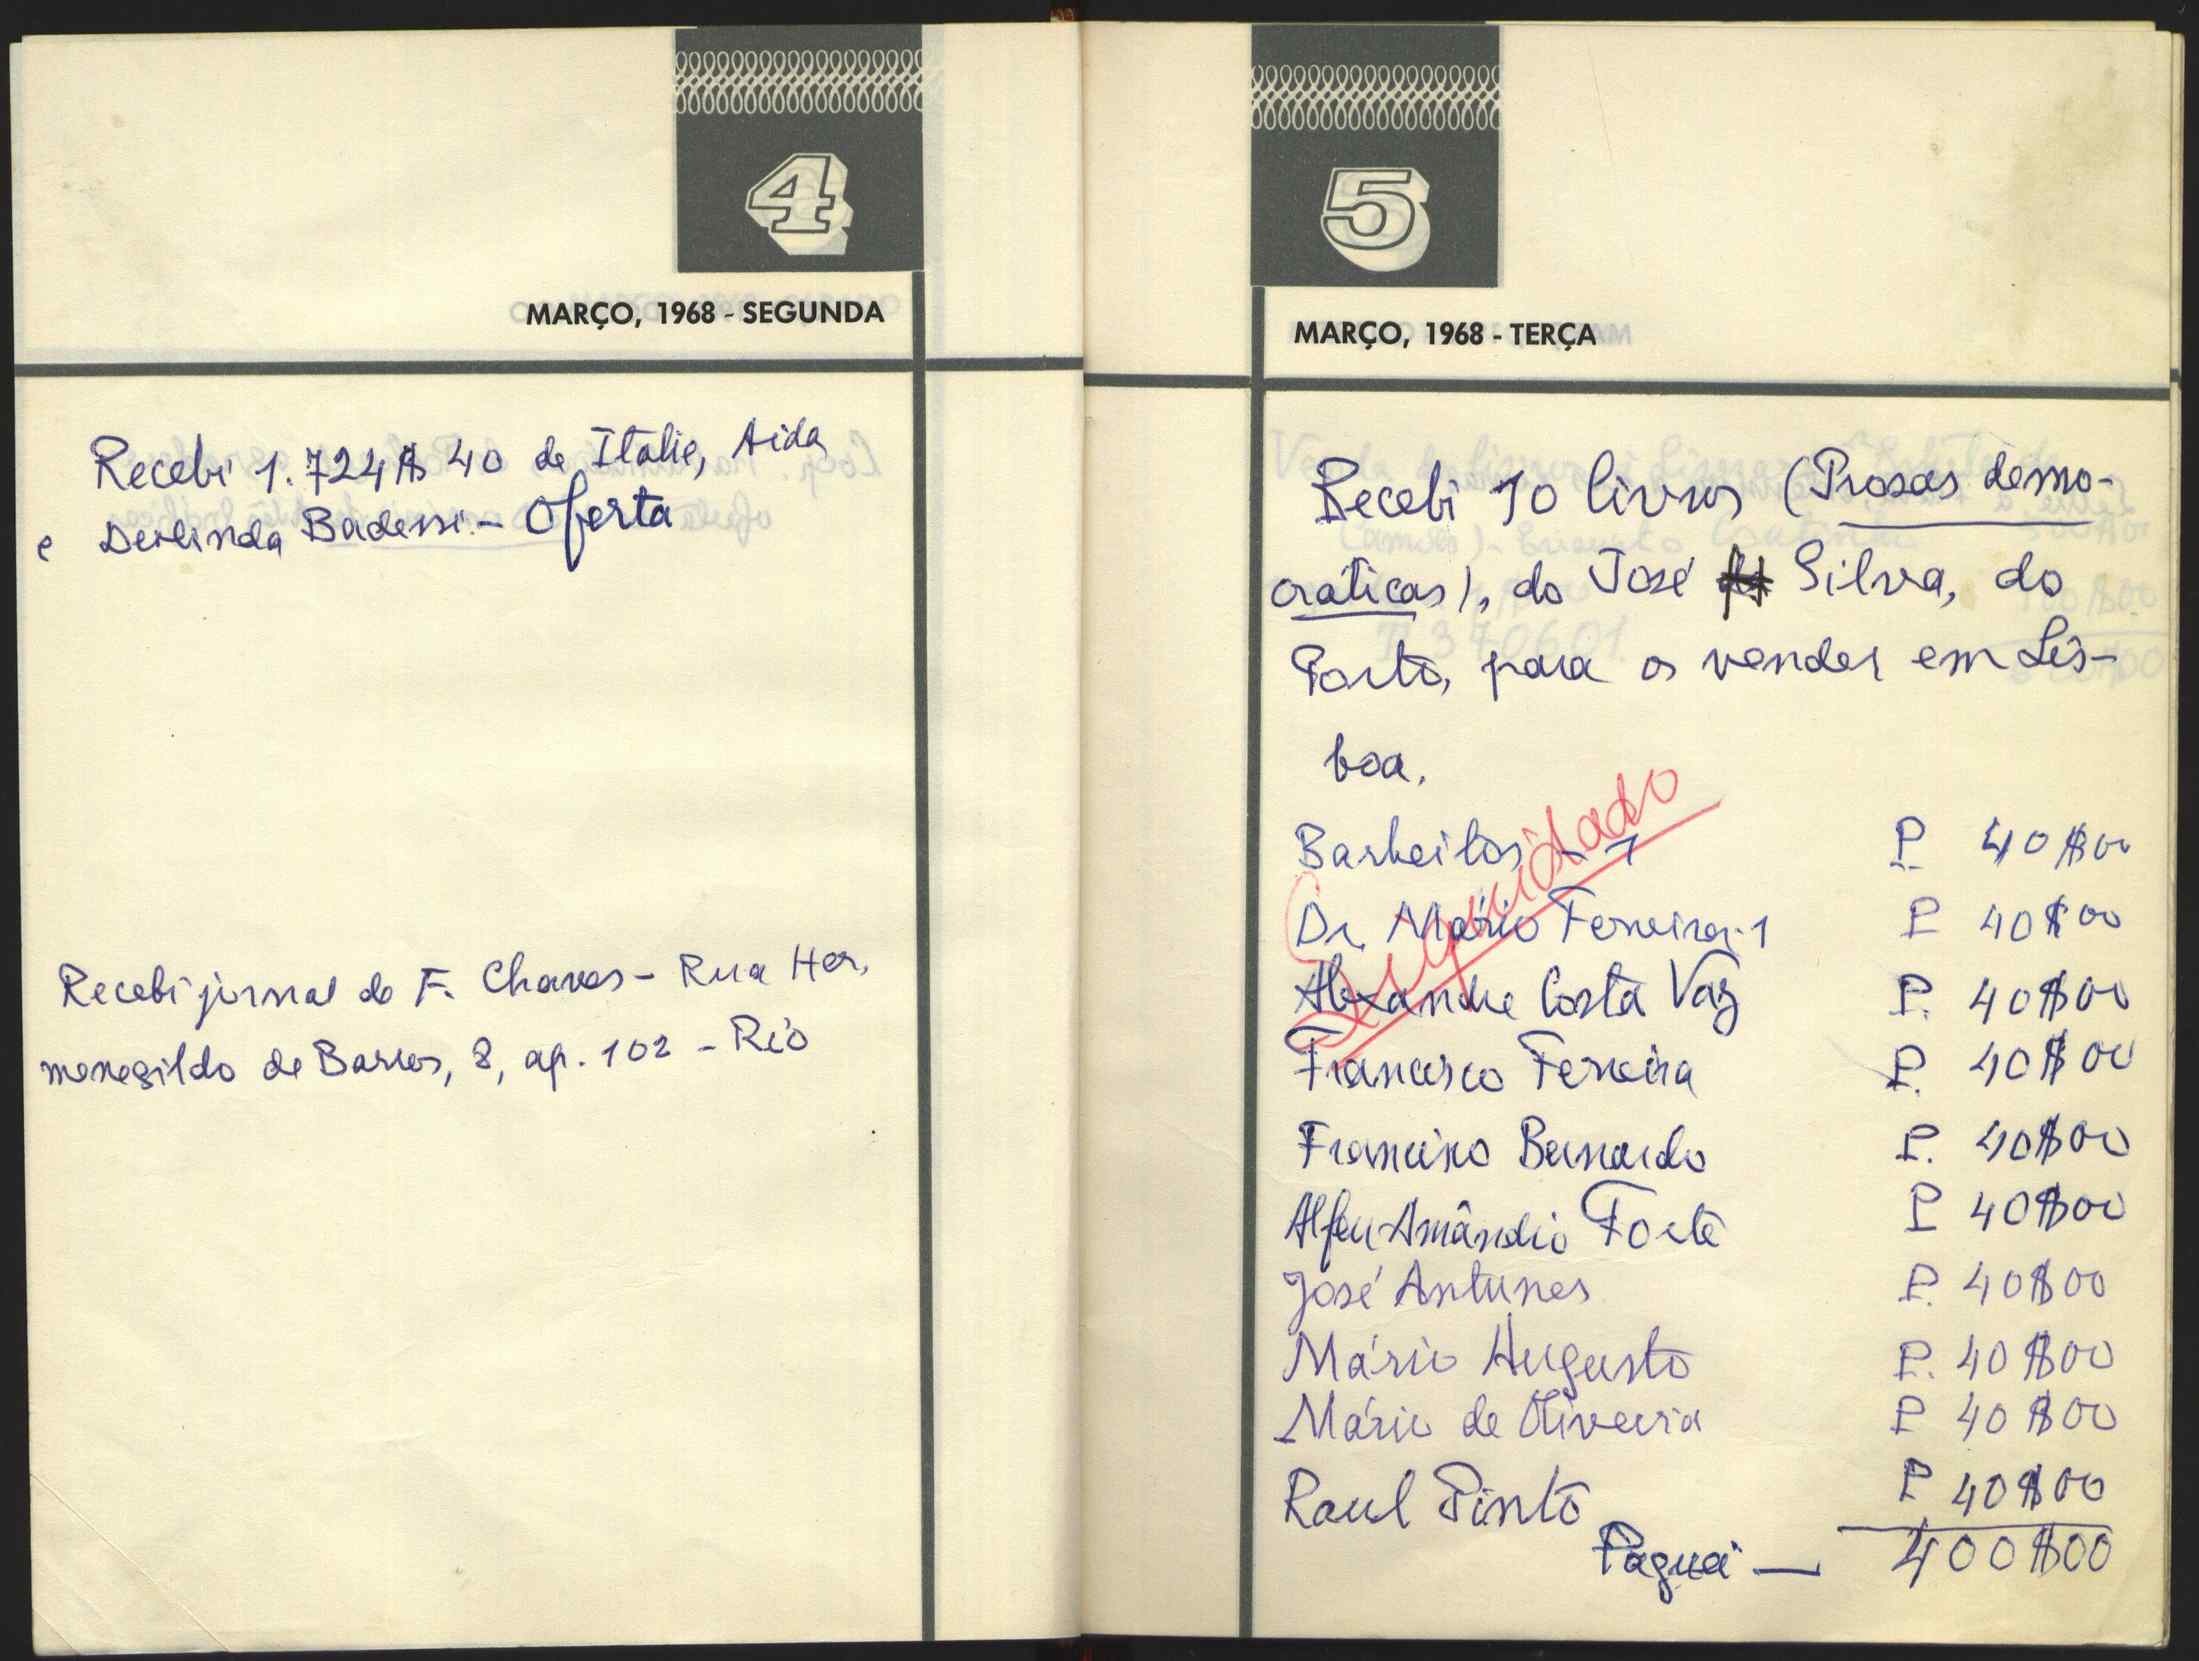 4
MARÇO, 1968 - SEGUNDA
Recebi 1.724$40 de Italie, Aida
e Derlinda Badessi - Oferta
Recebi jornal do F. Chaves - Rua Her,
menegildo de Barros, 8, ap. 102 - Rio
5
MARÇO, 1968 - TERÇA
Recebi 10 livros (Prosas demo-
cráticas), do José Silva, do
Porto, para os vender em Lis-
boa.
Liquidado
Barkeitos - 1 P 40$00
Dr. Mário Ferreira - 1 P 40$00
Alexandre Costa Vaz P. 40$00
Francisco Ferreira P. 40$00
Francisco Bernardo P. 40$00
Alfeu Amândio Forte P 40$00
José Antunes P. 40$00
Mário Augusto P. 40$00
Mário de Oliveira P 40$00
Raul Pinto P 40$00
Paguei — 400$00